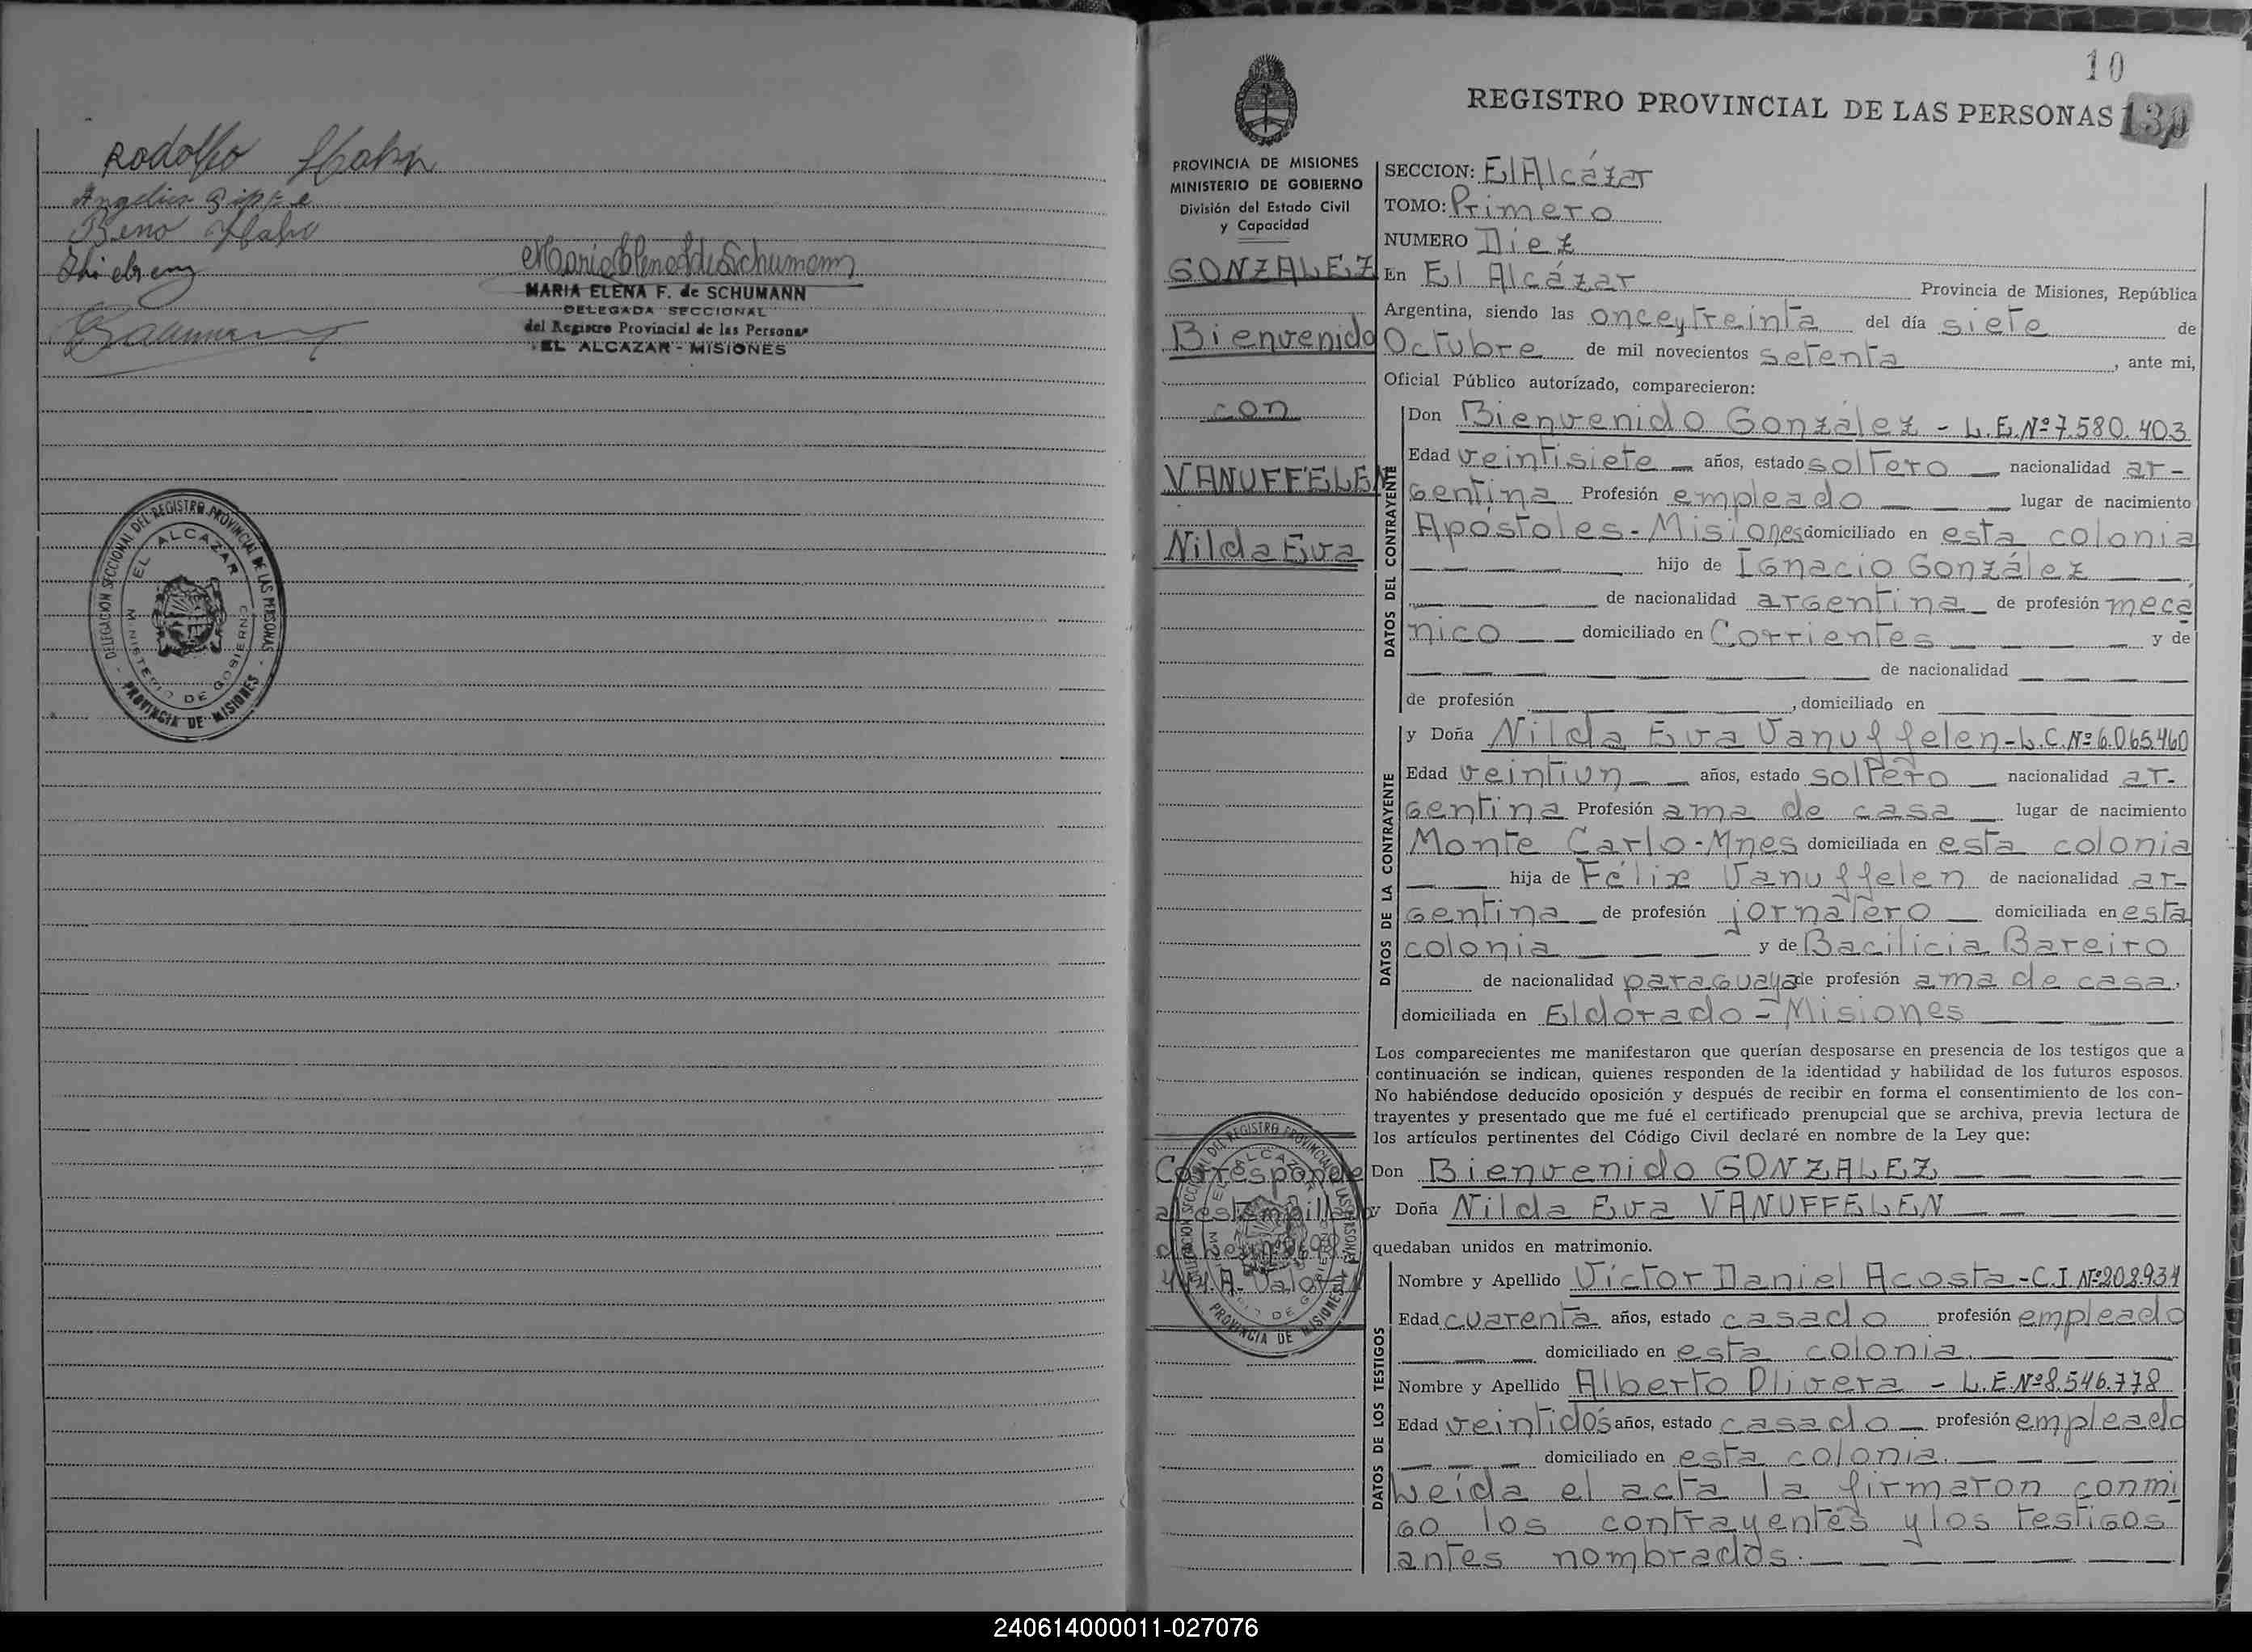 Rodolfo
Angelica
Beno
MARIA ELENA F. de SCHUMANN
DELEGADA SECCIONAL
del Registro Provincial de las Personas
EL ALCAZAR - MISIONES
DELEGACION SECCIONAL DEL REGISTRO PROVINCIAL DE LAS PERSONAS
EL ALCAZAR
MINISTERIO DE GOBIERNO
PROVINCIA DE MISIONES
10
REGISTRO PROVINCIAL DE LAS PERSONAS
PROVINCIA DE MISIONES
MINISTERIO DE GOBIERNO
División del Estado Civil
y Capacidad
GONZALEZ
Bienvenido
con
VANUFFELEN
Nilda Eva
SECCION: El Alcázar
TOMO: Primero
NUMERO Diez
En El Alcázar Provincia de Misiones, República
Argentina, siendo las once y treinta del día siete de
Octubre de mil novecientos setenta, ante mi,
Oficial Público autorízado, comparecieron:
DATOS DEL CONTRAYENTE
Don Bienvenido González - L.E. Nº 7.580.403
Edad veintisiete años, estado soltero nacionalidad ar-
gentina Profesión empleado lugar de nacimiento
Apóstoles - Misiones domiciliado en esta colonia
hijo de Ignacio González
de nacionalidad argentina de profesión mecá
nico domiciliado en Corrientes y de
de nacionalidad
de profesión , domiciliado en
DATOS DE LA CONTRAYENTE
y Doña Nilda Eva Vanuffelen - L.C. Nº 6.065.460
Edad veintiun años, estado soltero nacionalidad ar-
gentina Profesión ama de casa lugar de nacimiento
Monte Carlo - Mnes domiciliada en esta colonia
hija de Félix Vanuffelen de nacionalidad ar-
gentina de profesión jornalero domiciliada en esta
colonia y de Bacilicia Bareiro
de nacionalidad paraguaya de profesión ama de casa,
domiciliada en Eldorado - Misiones
Los comparecientes me manifestaron que querían desposarse en presencia de los testigos que a
continuación se indican, quienes responden de la identidad y habilidad de los futuros esposos.
No habiéndose deducido oposición y después de recibir en forma el consentimiento de los con-
trayentes y presentado que me fué el certificado prenupcial que se archiva, previa lectura de
los artículos pertinentes del Código Civil declaré en nombre de la Ley que:
Don Bienvenido GONZALEZ
y Doña Nilda Eva VANUFFELEN
quedaban unidos en matrimonio.
Corresponde
al estampilla
Valor
DELEGACION SECCIONAL DEL REGISTRO PROVINCIAL DE LAS PERSONAS
EL ALCAZAR
MINISTERIO DE GOBIERNO
PROVINCIA DE MISIONES
DATOS DE LOS TESTIGOS
Nombre y Apellido Víctor Daniel Acosta - C.I. Nº 208.934
Edad cuarenta años, estado casado profesión empleado
domiciliado en esta colonia.
Nombre y Apellido Alberto Olivera - L.E. Nº 8.546.778
Edad veintidós años, estado casado profesión empleado
domiciliado en esta colonia.
Leída el acta la firmaron conmi
go los contrayentes y los testigos
antes nombrados.
240614000011-027076